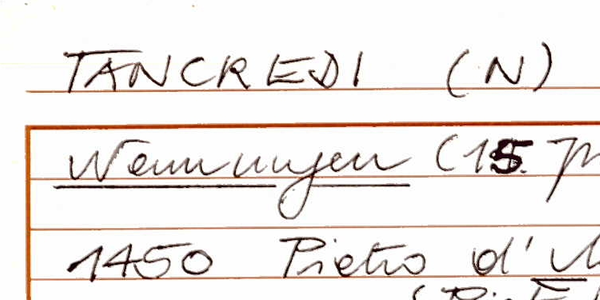 TANCREDI (N)
Nennungen (15.
1450 Pietro d'